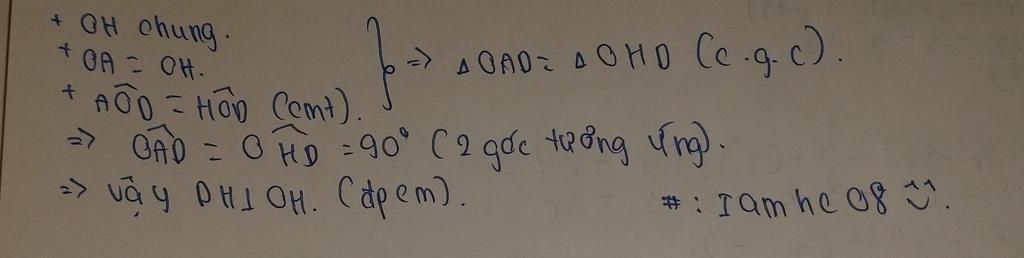 + OH chung.
+ OA = OH.
+ AÔD = HÔD (cmt).
} => ΔOAD = ΔOHD (c.g.c).
=> OÂD = OĤD = 90° (2 góc tương ứng).
=> Vậy DH⊥OH. (đpcm).
# : I am hc 08 ⍨.